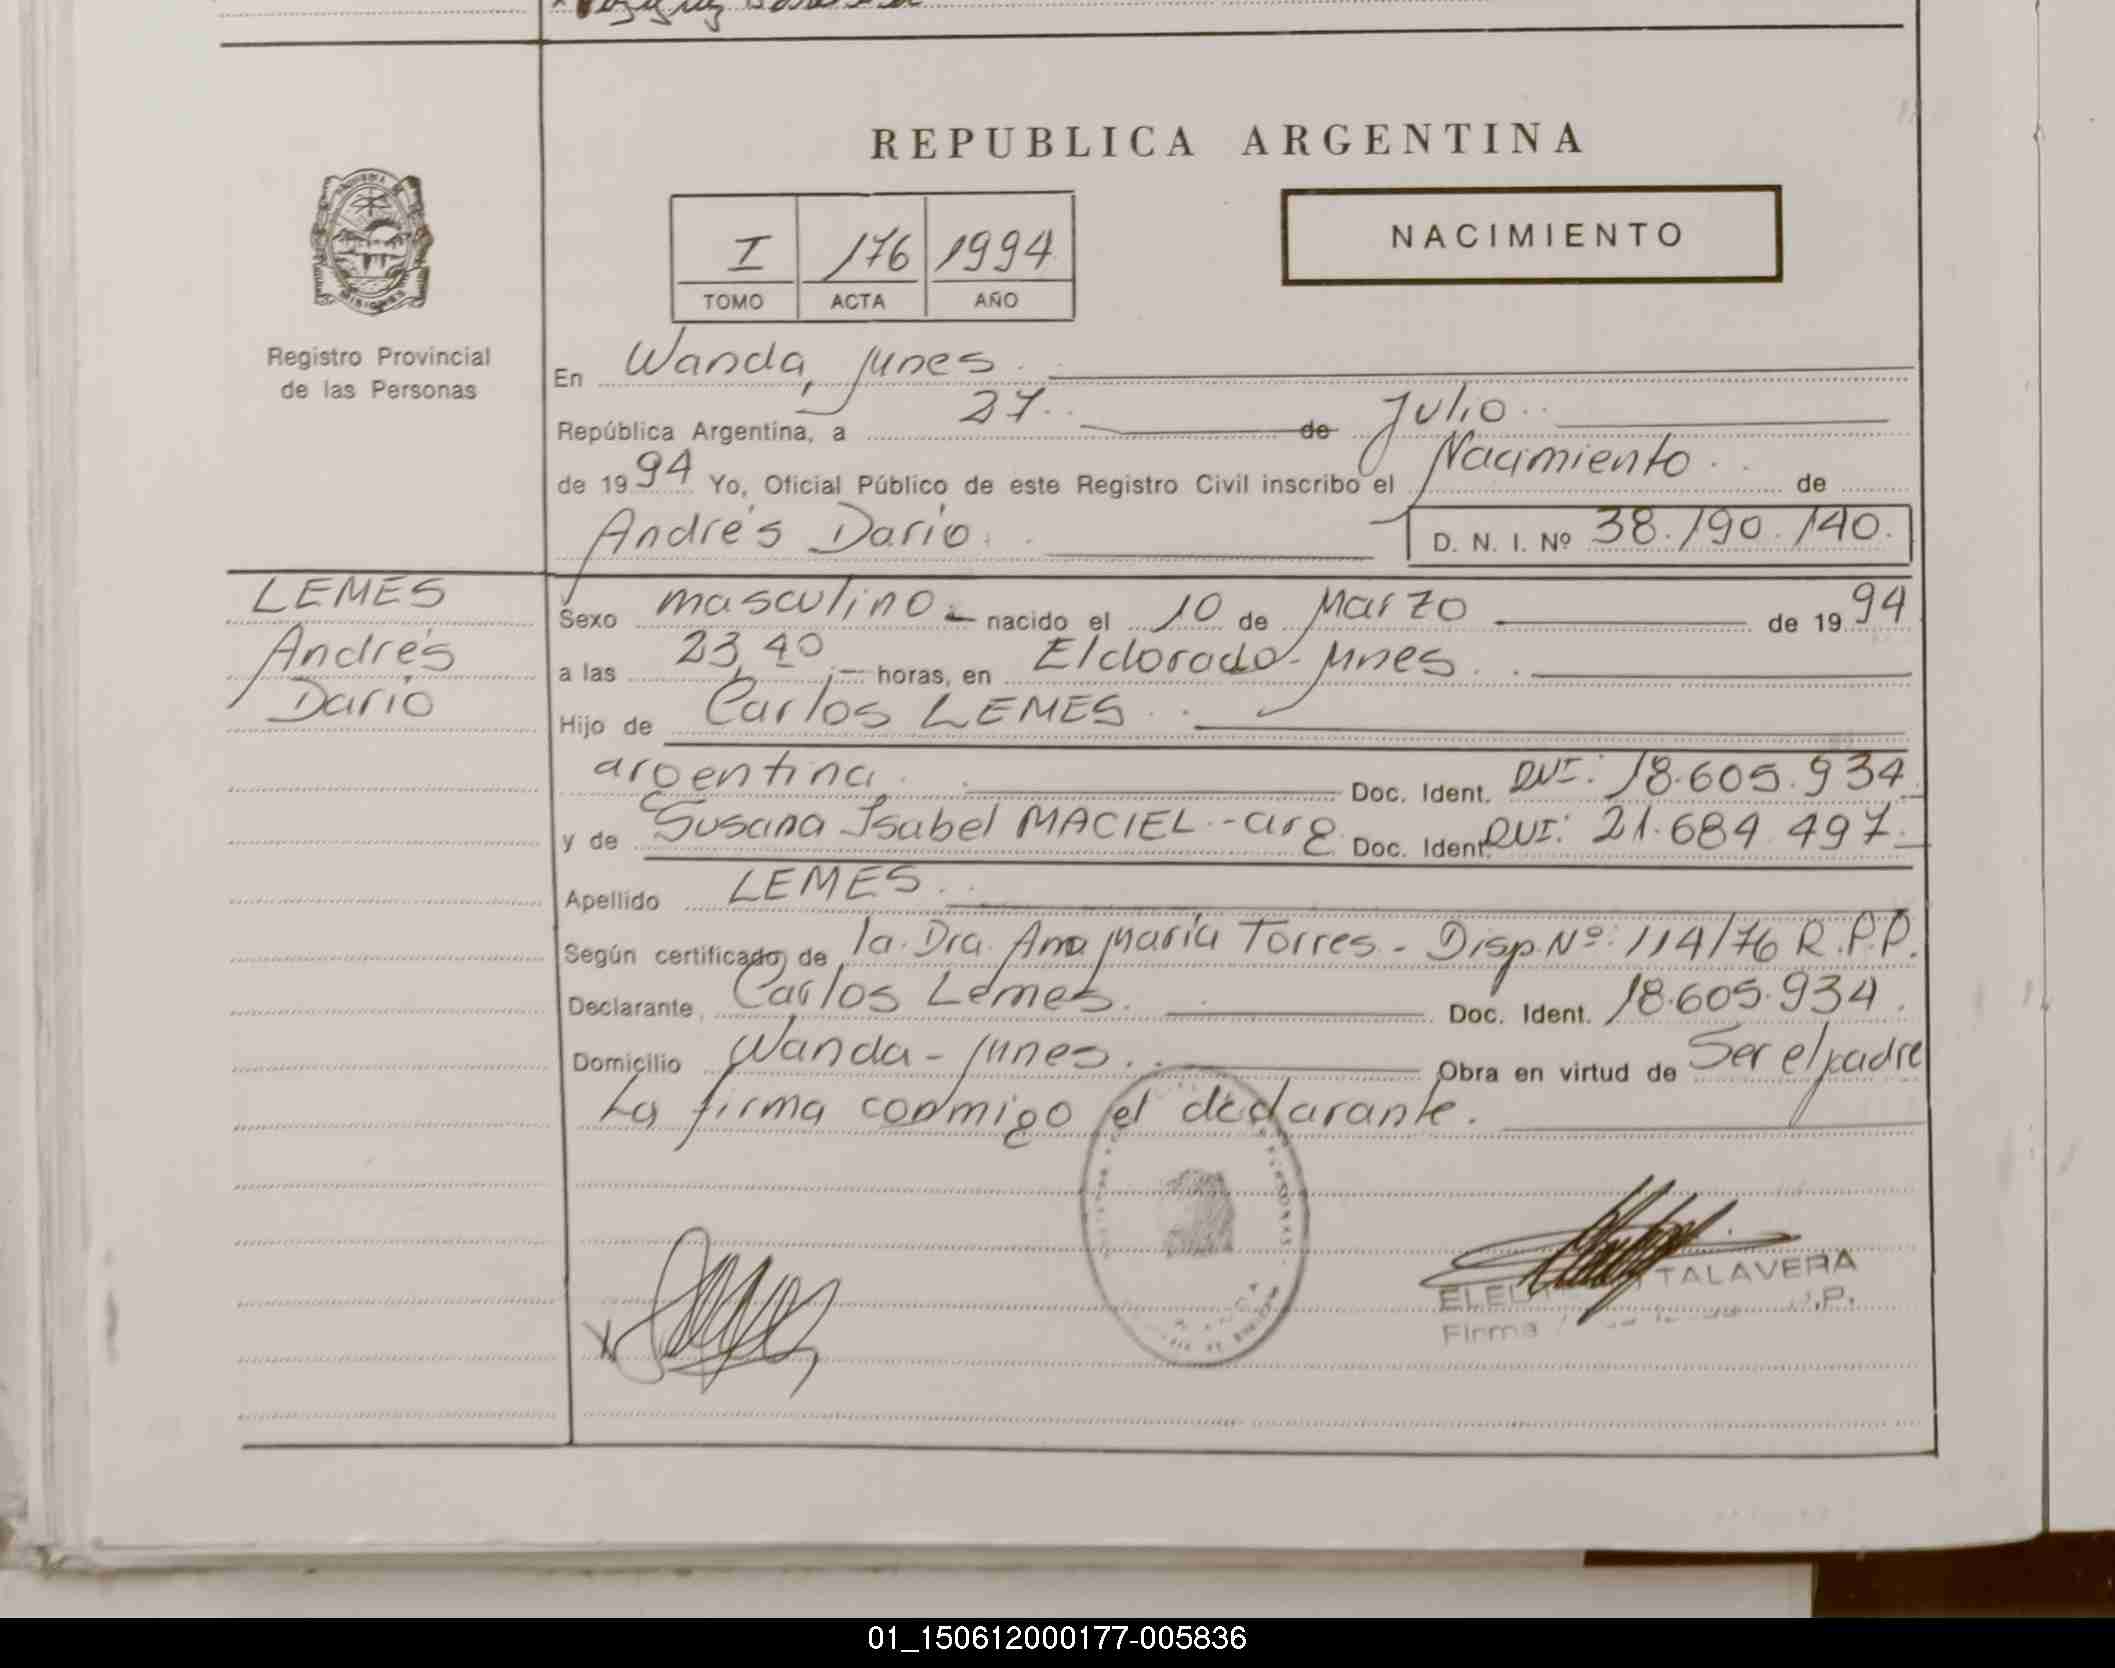 REPUBLICA ARGENTINA
I 176 1994
TOMO ACTA AÑO
NACIMIENTO
MISIONES
Registro Provincial
de las Personas
En Wanda, Mnes
República Argentina, a 27 de Julio
de 1994 Yo, Oficial Público de este Registro Civil inscribo el Nacimiento de
Andrés Dario D. N. I. Nº 38.190.140.
LEMES
Andrés
Dario
Sexo masculino nacido el 10 de Marzo de 1994
a las 23,40 horas, en Eldorado - Mnes
Hijo de Carlos LEMES
argentina Doc. Ident. DNI: 18.605.934
y de Susana Isabel MACIEL.- arg Doc. Ident. DNI: 21.684.497.
Apellido LEMES
Según certificado de la Dra. Ana María Torres - Disp. Nº: 114/76 R.P.P.
Declarante Carlos Lemes. Doc. Ident. 18.605.934.
Domicilio Wanda - Mnes. Obra en virtud de Ser el padre
La firma conmigo el declarante.
TALAVERA
Firma
01_150612000177-005836